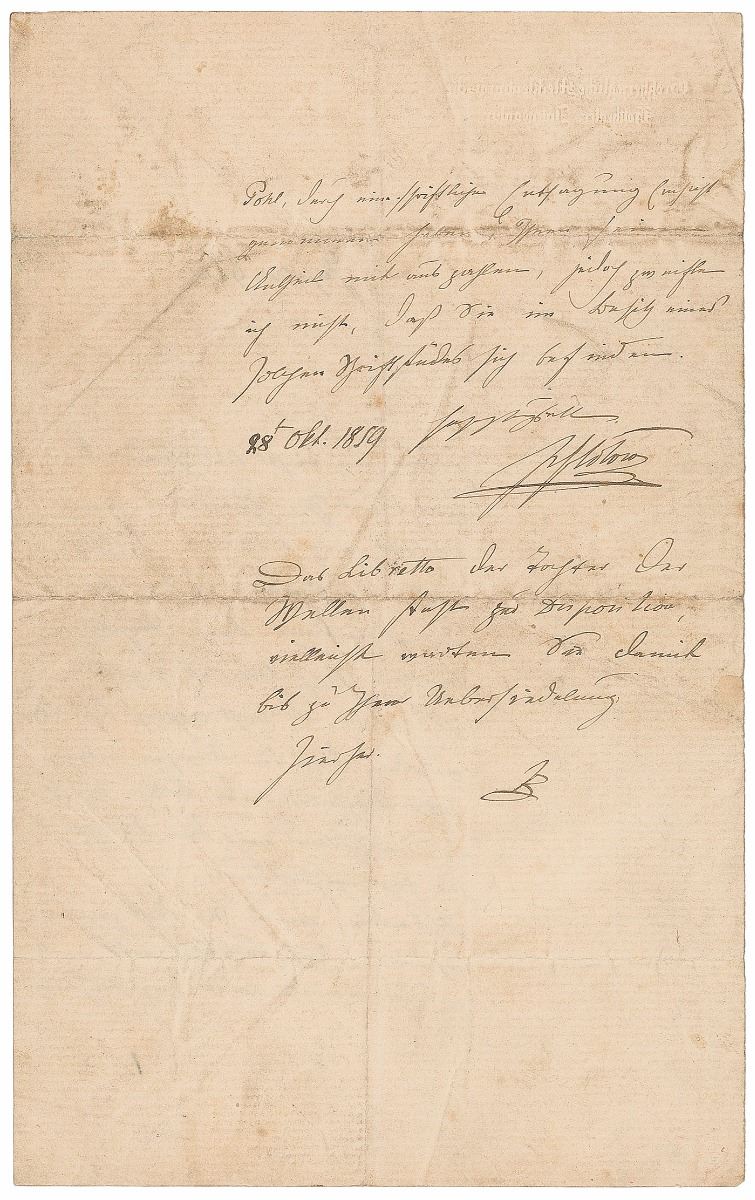 Pohl, durch eine schriftliche Entsagung Einsicht
genommen haben, Ihnen seinen
Antheil mit auszahlen, jedoch zweifle
ich nicht, daß Sie im Besitz eines
solchen Schriftstückes sich befinden.
28t Okt. 1859
Flotow
Das Libretto der Tochter der
Wellen steht zur Disposition,
vielleicht warten Sie damit
bis zu Ihrer Uebersiedelung
hierher.